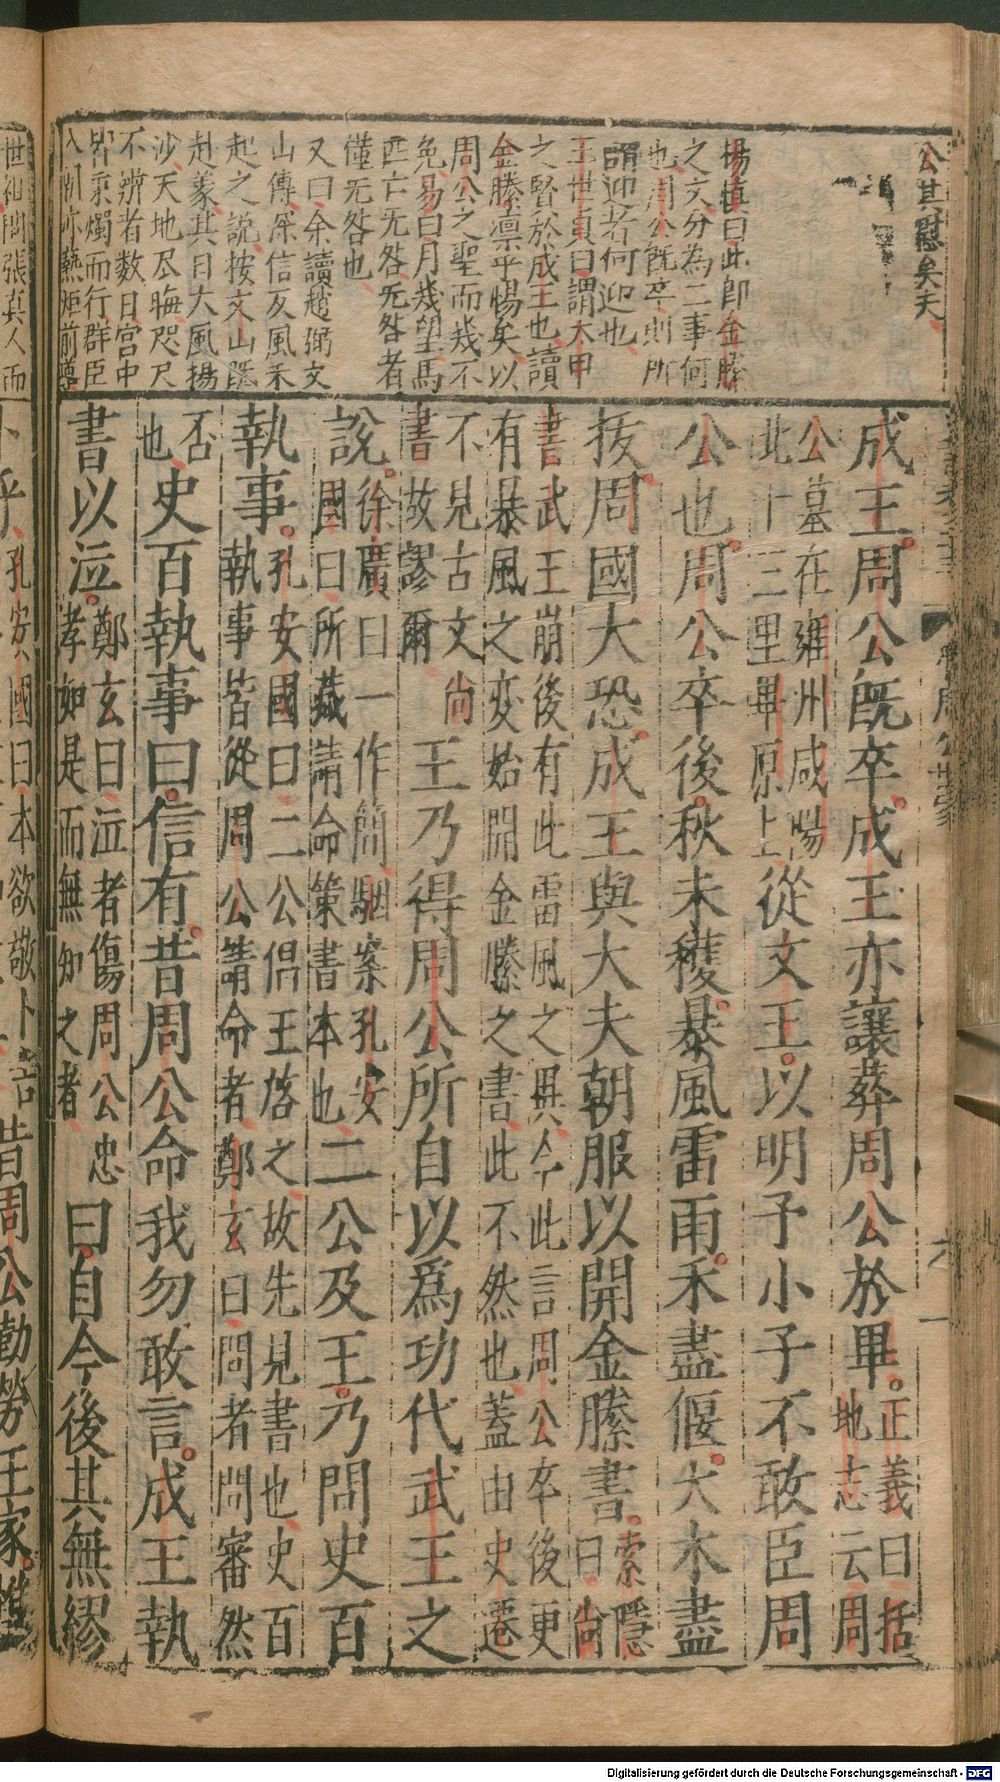 公世慰矣夫
楊慎曰此即金縢
之文分為二事何
也周公既卒則所
謂迎者何迎也
王世貞曰謂太甲
之賢於成王也讀
金縢凛乎惕矣以
周公之聖而幾不
免易曰月幾望馬
匹亡无咎无咎者
僅无咎也
又曰余讀趙弼文
山傳深信反風禾
起之說按文山既
赴義其日大風揚
沙天地尽晦咫尺
不辨者数日宮中
皆秉燭而行群臣
入朝亦爇炬前導
成王周公既卒成王亦讓葬周公於畢正義曰括
地志云周
公墓在雍州咸陽
北十三里畢原上從文王以明予小子不敢臣周
公也周公卒後秋未穫暴風雷雨禾盡偃大木盡
拔周國大恐成王與大夫朝服以開金縢書索隱
曰尚
書武王崩後有此雷風之異今此言周公卒後更
有暴風之变始開金縢之書此不然也蓋由史遷
不見古文尚
書故謬爾王乃得周公所自以爲功代武王之
說徐廣曰一作簡駰案孔安
國曰所藏請命策書本也二公及王乃問史百
執事孔安國曰二公倡王啓之故先見書也史百
執事皆從周公請命者鄭玄曰問者問審然
否
也史百執事曰信有昔周公命我勿敢言成王執
書以泣鄭玄曰泣者傷周公忠
孝如是而無知之者曰自今後其無繆
世祖問張真人而
卜乎孔安國曰本欲敬卜吉昔周公勤勞王家惟
Digitalisierung gefördert durch die Deutsche Forschungsgemeinschaft - DFG